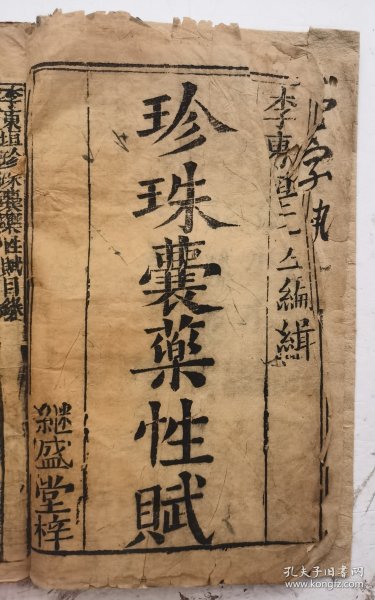 李東垣先生編緝
珍珠囊藥性賦
繼盛堂梓
李東垣珍珠囊藥性賦目錄
孔夫子旧书网
www.kongfz.com